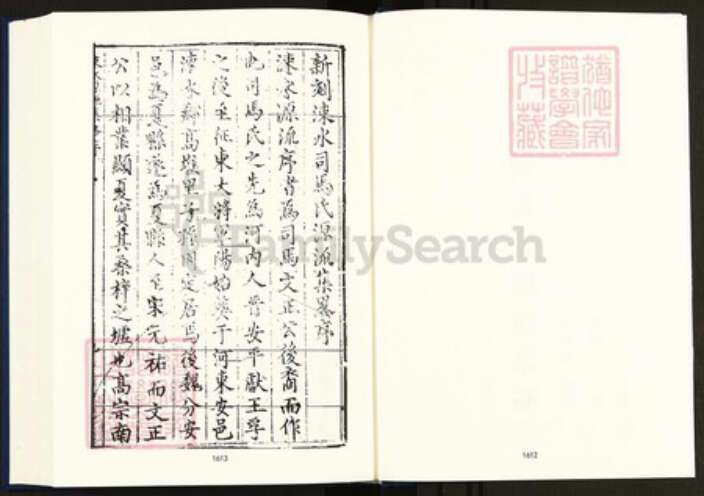 新刻涑水司馬氏源流集畧序
涑水源流序者為司馬文正公後裔而作
也司馬氏之先為河內人晉安平獻王孚
之後至征東大將軍陽始葬于河東安邑
涑水鄉高堠里子孫因定居焉後魏分安
邑為夏縣遂為夏縣人至宋元祐而文正
公以相業顯夏實其桑梓之墟也高宗南
1613
1612
FamilySearch